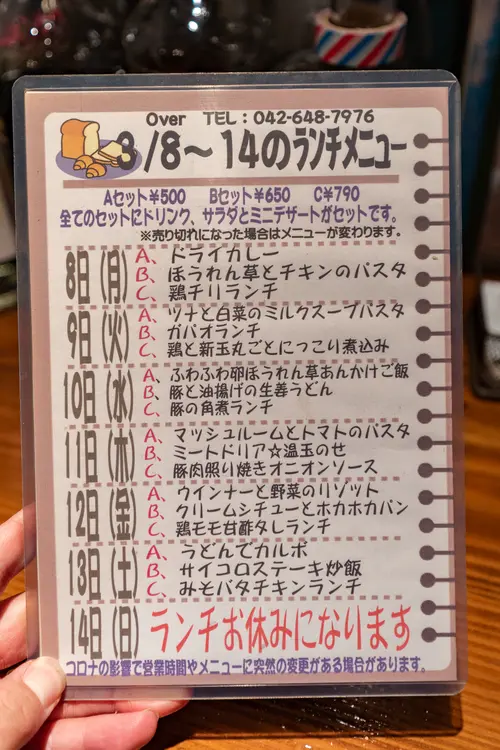 Over TEL：042-648-7976
3/8～14のランチメニュー
Aセット¥500 Bセット¥650 C¥790
全てのセットにドリンク、サラダとミニデザートがセットです。
※売り切れになった場合はメニューが変わります。
8日（月）
A、ドライカレー
B、ほうれん草とチキンのパスタ
C、鶏チリランチ
9日（火）
A、ツナと白菜のミルクスープパスタ
B、ガパオランチ
C、鶏と新玉丸ごとにっこり煮込み
10日（水）
A、ふわふわ卵ほうれん草あんかけご飯
B、豚と油揚げの生姜うどん
C、豚の角煮ランチ
11日（木）
A、マッシュルームとトマトのパスタ
B、ミートドリア☆温玉のせ
C、豚肉照り焼きオニオンソース
12日（金）
A、ウインナーと野菜のリゾット
B、クリームシチューとホカホカパン
C、鶏モモ甘酢タレランチ
13日（土）
A、うどんでカルボ
B、サイコロステーキ炒飯
C、みそバタチキンランチ
14日（日）ランチお休みになります
コロナの影響で営業時間やメニューに突然の変更がある場合があります。